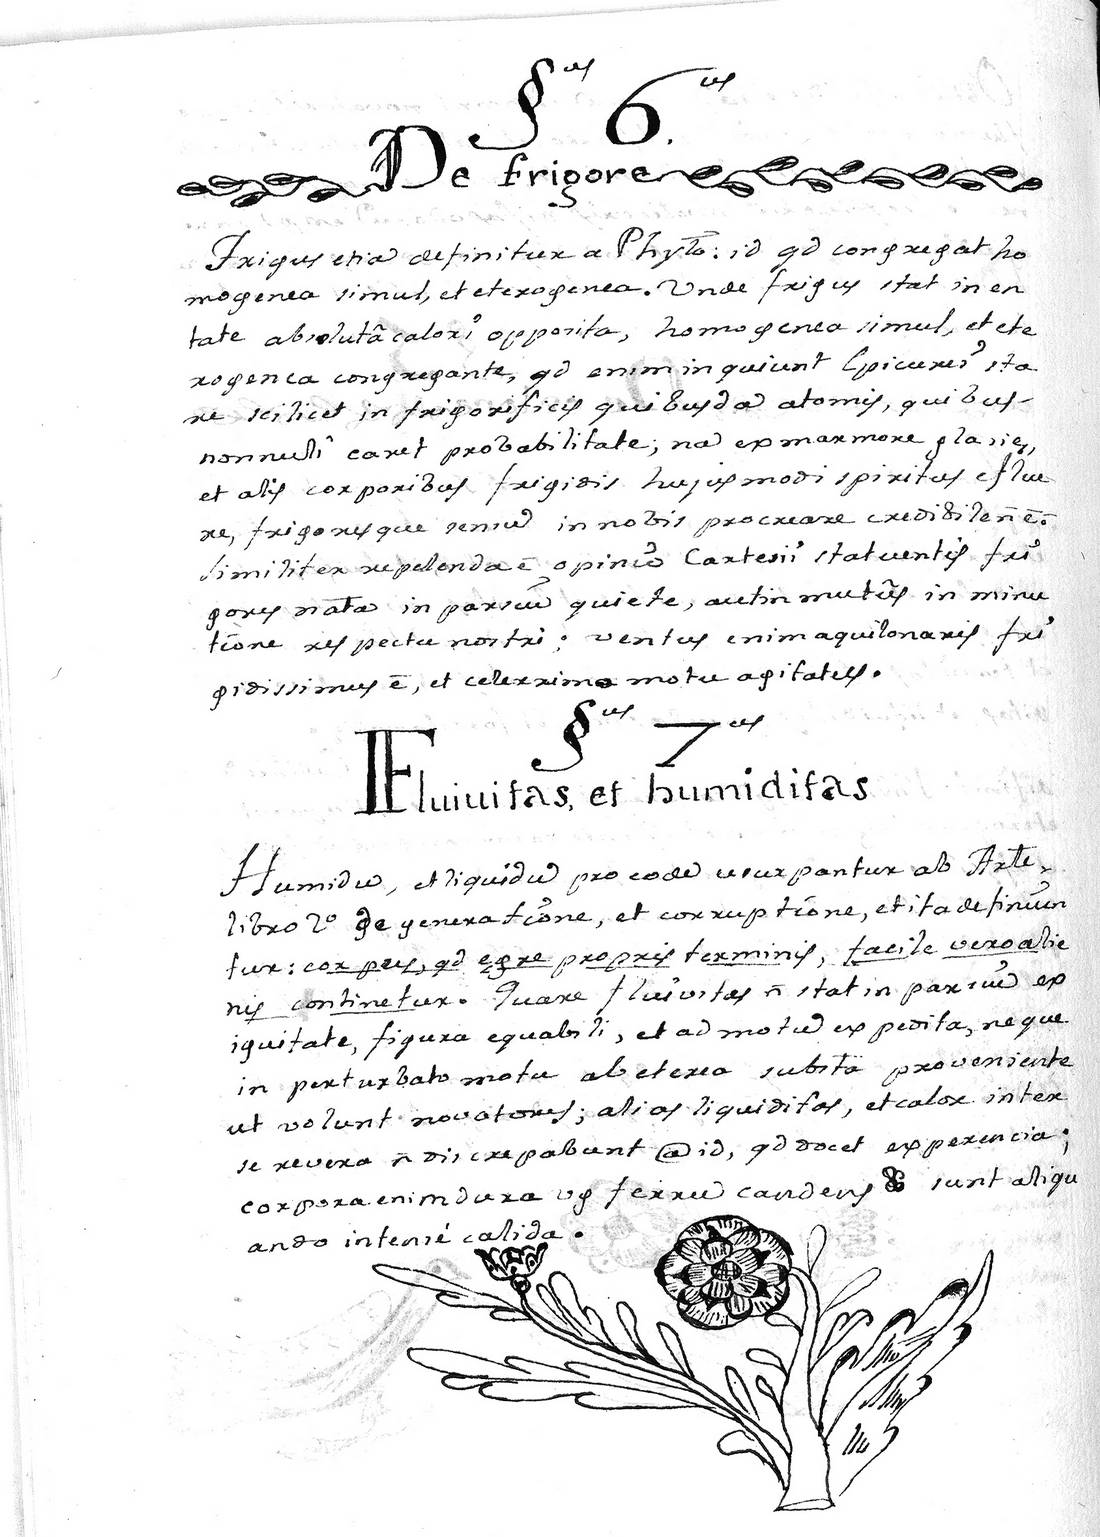 §us 6us.
De frigore
Frigus etiã definitur a Phyl̃o: id qd congregat ho
mogenea simul, et eterogenea. Unde frigus stat in en
tate absolutã calori opposita, homogenea simul, et ete
rogenea congregante, qd enim inquiunt Epicurei sta
re scilicet in frigorificis quibusdã atomis, quibus
nonnulli caret probabilitate; nã ex marmore glacies,
et aliis corporibus frigidis hujusmodi spiritus eflue
re, frigorisque sensũ in nobis procreare credibile ñ ẽ.
Similiter repelenda ẽ opinio Cartesii statuentis fri
goris natã in parsiũ quiete, aut in mutũs in minu
tione respectu nostri; ventus enim aquilonaris fri
gidissimus ẽ, et celerrimo motu agitatus.
§us 7us
Fluiuitas, et humiditas
Humidũ, et liquidũ pro eode usurpantur ab Arte.
libro 2o de generatione, et corruptione, et ita definiun
tur: corpus, qd egre propris terminis, facile vero alie
nis continetur. Quare fluivitas ñ stat in parsiũ ex
iguitate, figura equabili, et ad motũ expedita, neque
in perturbato motu ab eterea substã proveniente
ut volunt novatores; alias liquiditas, et calor inter
se revera ñ discrepabunt @ id, qd docet experencia;
corpora enim dura vg ferrũ candens & sunt aliqu
ando intensé calida.